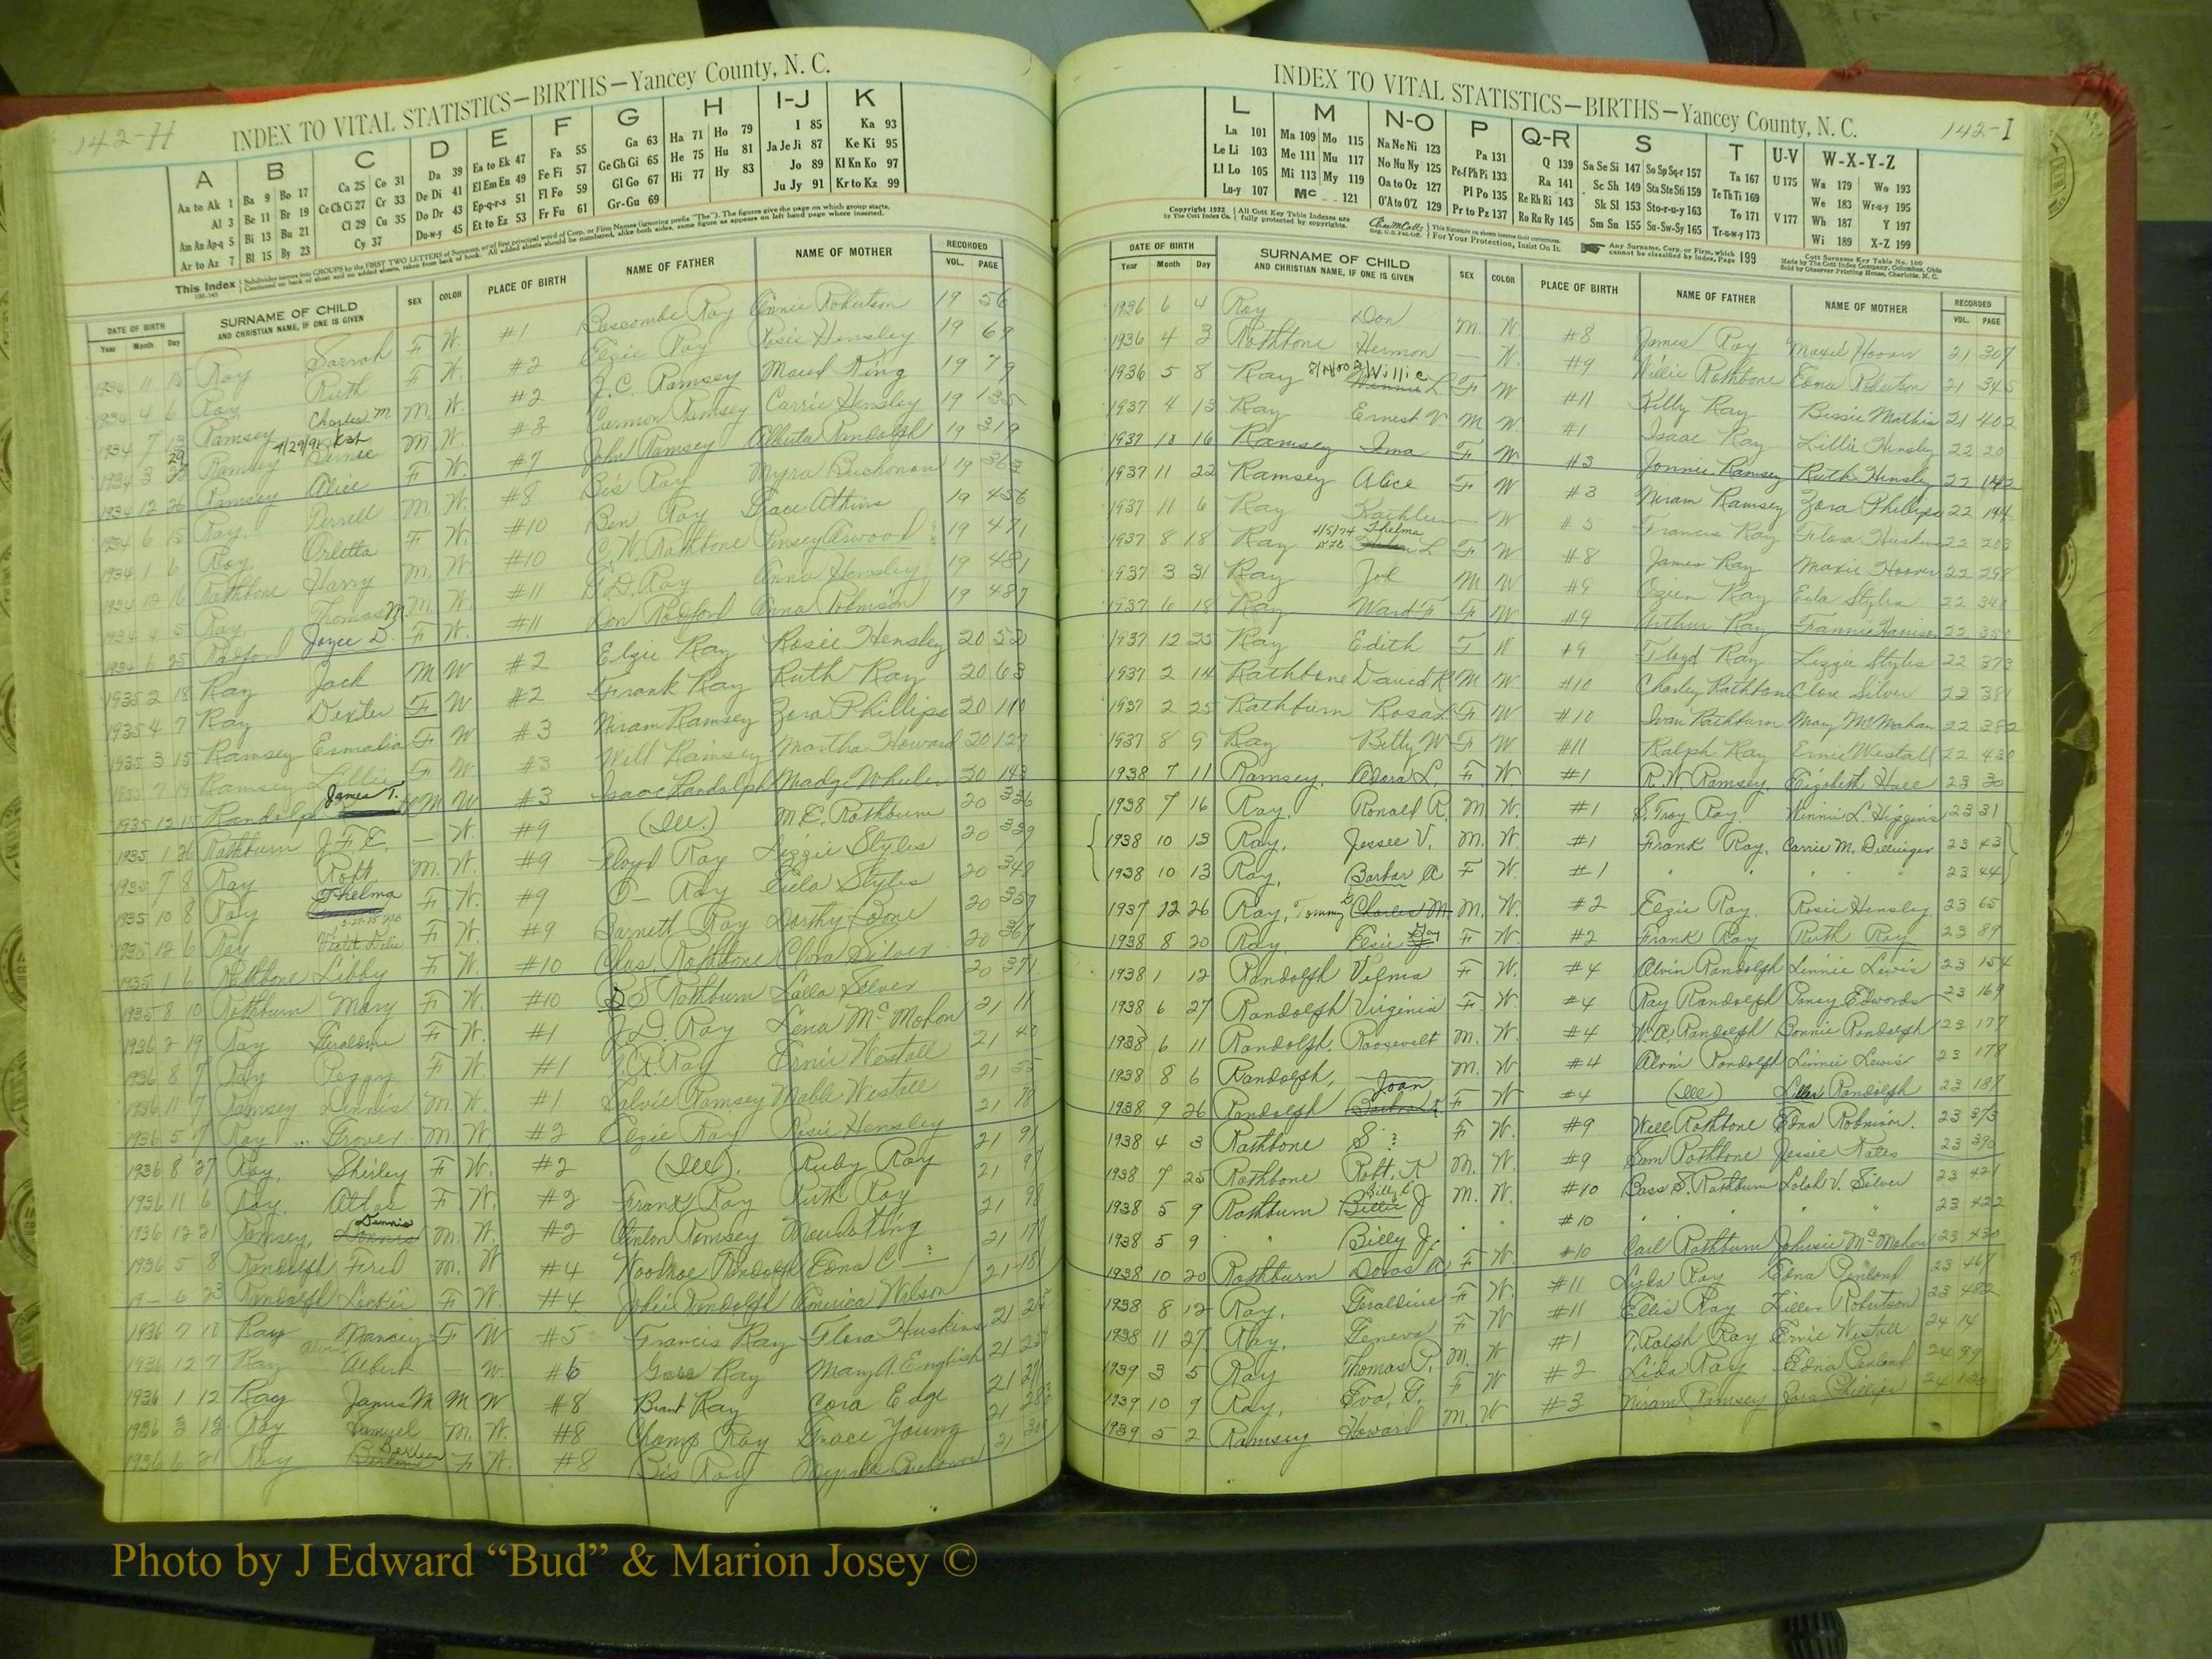 142-H
INDEX TO VITAL STATISTICS—BIRTHS—Yancey County, N. C.
A B C D E F G H I-J K
Aa to Ak 1 Ba 9 Bo 17 Ca 25 Co 31 Da 39 Ea to Ek 47 Fa 55 Ga 63 Ha 71 Ho 79 I 85 Ka 93
Al 3 Be 11 Br 19 Ce Ch Ci 27 Cr 33 De Di 41 El Em En 49 Fe Fi 57 Ge Gh Gi 65 He 75 Hu 81 Ja Je Ji 87 Ke Ki 95
Am An Ap-q 5 Bi 13 Bu 21 Cl 29 Cu 35 Do Dr 43 Ep-q-r-s 51 Fl Fo 59 Gl Go 67 Hi 77 Hy 83 Jo 89 Kl Kn Ko 97
Ar to Az 7 Bl 15 By 23 Cy 37 Du-w-y 45 Et to Ez 53 Fr Fu 61 Gr-Gu 69 Ju Jy 91 Kr to Kz 99
This Index
DATE OF BIRTH SURNAME OF CHILD SEX COLOR PLACE OF BIRTH NAME OF FATHER NAME OF MOTHER RECORDED
Year Month Day AND CHRISTIAN NAME, IF ONE IS GIVEN VOL. PAGE
1934 11 15 Ray Sarrah F W. #1 Bascombe Ray Annie Robertson 19 56
1934 4 6 Ray Ruth F W. #2 Elzie Ray Rosie Hensley 19 69
1934 7 13 Ramsey Charles M. M. W. #2 J.C. Ramsey Maud King 19 79
1934 3 Ramsey M W. #3 Carmon Ramsey Carrie Hensley 19 135
1934 12 26 Ramsey Alice F W. #7 John Ramsey Alberta Randolph 19 319
1934 6 15 Ray, Derrell M. W. #8 Bis Ray Myra Buchanan 19 363
1934 1 6 Ray, Orletta F W. #10 Ben Ray Grace Atkins 19 456
1934 12 16 Rathbone Harry M. W. #10 C.W. Rathbone 19 471
1934 4 5 Ray, Thomas M. M. W. #11 D. Ray Anna Hensley 19 481
1934 6 25 Radford Joyce D. F W. #11 Don Radford Anna Robinson 19 487
1935 2 18 Ray Jack M W #2 Elzie Ray Rosie Hensley 20 52
1935 4 7 Ray Dexter F W #2 Frank Ray Ruth Ray 20 63
1935 3 15 Ramsey Esmalia F W #3 Niram Ramsey Zora Phillips 20 110
1935 7 19 Ramsey Lillie F W. #3 Will Ramsey Martha Howard 20 127
1935 12 15 Randolph James T. M W #3 Isaac Randolph Madge Wheeler 20 143
1935 1 26 Rathburn J.F.E. — W. #9 (Ill.) M.E. Rathburn 20 336
1935 7 8 Ray Robt. M. W. #9 Floyd Ray Lizzie Styles 20 339
1935 10 8 Ray Thelma F W. #9 O— Ray Eula Styles 20 348
1935 12 6 Ray F W. #9 Garnett Ray Dorthy Boone 20 359
1935 1 6 Rathbone Libby F W. #10 Chas. Rathbone Clora Silver 20 367
1935 8 10 Rathburn Mary F W. #10 S Rathburn Lalla Silver 20 371
1936 2 19 Ray Geraldine F W. #1 J.D. Ray Lena McMahon 21 11
1936 8 7 Ray Peggy F W. #1 Ray Ernie Westall 21 40
1936 11 7 Ramsey Dennis M. W. #1 Salvie Ramsey Mable Westall 21 55
1936 5 7 Ray ... Grover M. W. #2 Elzie Ray Rosie Hensley 21 78
1936 8 27 Ray, Shirley F W. #2 (Ill). Ruby Ray 21 91
1936 11 6 Ray, Athas F W. #2 Frank Ray Ruth Ray 21 97
1936 12 21 Ramsey, Dennis M. W. #2 Ramsey Maud King 21 98
1936 5 8 Randolph Fred M. W #4 Woodroe Randolph Edna C. ? 21 177
19— 6 23 Randolph Lockie F W. #4 John Randolph America Wilson 21 181
1936 7 17 Ray Nancy F W #5 Francis Ray Flora Huskins 21 215
1936 12 7 Ray Albert — W. #6 Ray Mary A. English 21
1936 1 12 Ray James M M W #8 Brant Ray Cora Edge 21
1936 3 13 Ray Samuel M. W. #8 Champ Ray Grace Young 21
1936 6 21 Ray F W. #8 Bis Ray Buchanan 21
142-I
INDEX TO VITAL STATISTICS—BIRTHS—Yancey County, N. C.
L M N-O P Q-R S T U-V W-X-Y-Z
La 101 Ma 109 Mo 115 Na Ne Ni 123 Pa 131 Q 139 Sa Se Si 147 So Sp Sq-r 157 Ta 167 U 175 Wa 179 Wo 193
Le Li 103 Me 111 Mu 117 No Nu Ny 125 Pe-f Ph Pi 133 Ra 141 Sc Sh 149 Sta Ste Sti 159 Te Th Ti 169 We 183 Wr-u-y 195
Ll Lo 105 Mi 113 My 119 Oa to Oz 127 Pl Po 135 Re Rh Ri 143 Sk Sl 153 Sto-r-u-y 163 To 171 V 177 Wh 187 Y 197
Lu-y 107 Mc 121 O'A to O'Z 129 Pr to Pz 137 Ro Ru Ry 145 Sm Sn 155 Su-Sw-Sy 165 Tr-u-w-y 173 Wi 189 X-Z 199
Copyright 1932 by The Cott Index Co. All Cott Key Table Indexes are fully protected by copyrights. For Your Protection, Insist On It. Any Surname, Corp. or Firm, which cannot be classified by Index, Page 199
Cott Surname Key Table No. 100 Made by The Cott Index Company, Columbus, Ohio Sold by Observer Printing House, Charlotte, N. C.
DATE OF BIRTH SURNAME OF CHILD SEX COLOR PLACE OF BIRTH NAME OF FATHER NAME OF MOTHER RECORDED
Year Month Day AND CHRISTIAN NAME, IF ONE IS GIVEN VOL. PAGE
1936 6 4 Ray Don M. W. #8 James Ray Maxie Hoover 21 307
1936 4 3 Rathbone Hermon — W. #9 Willie Rathbone Edna Robertson 21 345
1936 5 8 Ray Willie L F W #11 Ray Bessie Mathis 21 402
1937 4 13 Ray Ernest V. M W #1 Isaac Ray Lillie Hensley 22 20
1937 10 16 Ramsey Ima F W #3 Jonnie Ramsey Ruth Hensley 22 142
1937 11 22 Ramsey Alice F W #3 Niram Ramsey Zora Phillips 22 144
1937 11 6 Ray Kathleen — W #5 Francis Ray Flora Huskins 22 203
1937 8 18 Ray Thelma L F W #8 James Ray Maxie Hoover 22 298
1937 3 31 Ray Joe M W #9 Ozien Ray Eula Styles 22 340
1937 6 18 Ray Ward F F W #9 Arthur Ray Fannie Harrison 22 350
1937 12 25 Ray Edith F W #9 Floyd Ray Lizzie Styles 22 373
1937 2 14 Rathbone David R M W #10 Charley Rathbone Clore Silver 22 381
1937 2 25 Rathburn Rosa L F W #10 Ivan Rathburn Mary McMahan 22 382
1937 8 9 Ray Betty W F W #11 Ralph Ray Ernie Westall 22 430
1938 7 11 Ramsey, L. F. W. #1 R.W. Ramsey, Elizabeth Hall 23 30
1938 7 16 Ray, Ronald R. M. W. #1 S. Troy Ray. Winnie L. Higgins 23 31
1938 10 13 Ray, Jessee V. M. W. #1 Frank Ray. Carrie M. Dellinger 23 43
1938 10 13 Ray, Barbar A F W #1 " " " " 23 44
1937 12 26 Ray, Tommy Charles M M. W. #2 Elzie Ray. Rosie Hensley 23 65
1938 8 20 Ray Elsie F W. #2 Frank Ray Ruth Ray 23 89
1938 1 12 Randolph Velma F W. #4 Alvin Randolph Linnie Lewis 23 154
1938 6 27 Randolph Virginia F W. #4 Ray Randolph Pansy Edwards 23 169
1938 6 11 Randolph. Roosevelt M. W. #4 W.A. Randolph Bonnie Randolph 23 177
1938 8 6 Randolph, — M. W #4 Alvin Randolph Linnie Lewis 23 178
1938 9 26 Randolph Joan F W #4 (Ill) Randolph 23 187
1938 4 3 Rathbone S ? F W. #9 Will Rathbone Edna Robinson. 23 373
1938 7 25 Rathbone Robt. R M. W. #9 Sam Rathbone Jessie Bates 23 390
1938 5 9 Rathburn Billie J M. W. #10 Bass S. Rathburn V. Silver 23 421
1938 5 9 " Billy J. " " #10 " " " " 23 422
1938 10 20 Rathburn A F W. #10 Carl Rathburn Johnsie McMahan 23 430
1938 8 12 Ray, Geraldine F W. #11 Lyda Ray Edna Penland 23 467
1938 11 27 Ray, Geneva F W #11 Ellis Ray Robertson 23 482
1939 3 5 Ray Thomas P. M. W #1 T. Ralph Ray Ernie Westall 24 14
1939 10 9 Ray, Eva, G. F W #2 Lida Ray Edna Penland 24 99
1939 5 2 Ramsey Howard M. W #3 Niram Ramsey Zora Phillips 24 120
Photo by J Edward “Bud” & Marion Josey ©